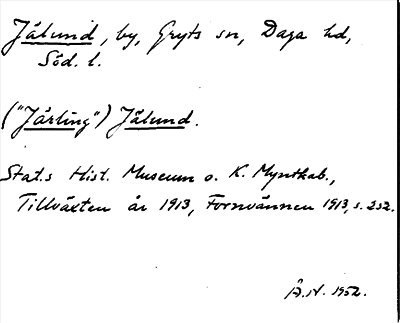 Jälund, by, Gryts sn, Daga hd,
Söd. l.
("Järling") Jälund.
Stat.s Hist. Museum o. K. Myntkab.,
Tillväxten år 1913, Fornvännen 1913, s. 232.
Å.N. 1952.